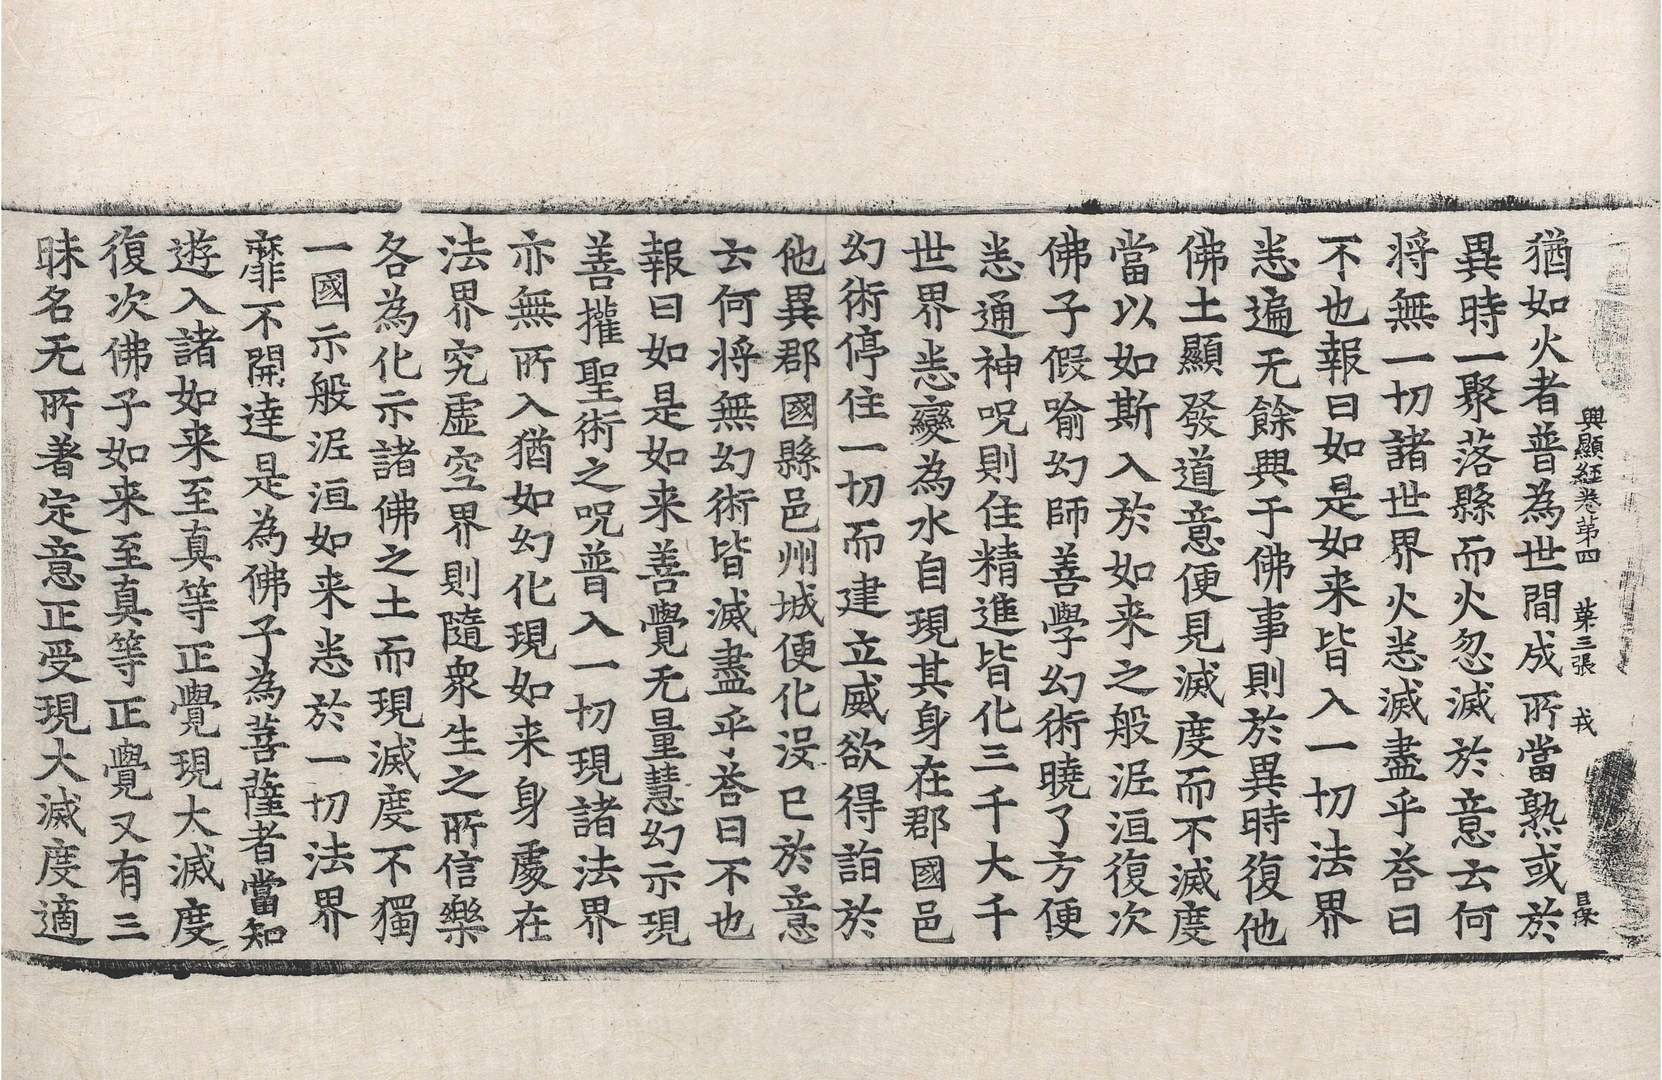 興顯經卷第四　第三張　戎
猶如火者普為世間成所當熟或於
異時一聚落縣而火忽滅於意云何
将無一切諸世界火悉滅盡乎荅曰
不也報曰如是如来皆入一切法界
悉遍无餘興于佛事則於異時復他
佛土顯發道意便見滅度而不滅度
當以如斯入於如来之般泥洹復次
佛子假喻幻師善學幻術曉了方便
悉通神呪則住精進皆化三千大千
世界悉變為水自現其身在郡國邑
幻術停住一切而建立威欲得詣於
他異郡國縣邑州城便化沒已於意
云何将無幻術皆滅盡乎荅曰不也
報曰如是如来善覺无量慧幻示現
善攉聖術之呪普入一切現諸法界
亦無所入猶如幻化現如来身處在
法界究虛空界則隨衆生之所信樂
各為化示諸佛之土而現滅度不獨
一國示般泥洹如来悉於一切法界
靡不開達是為佛子為菩薩者當知
遊入諸如来至真等正覺現大滅度
復次佛子如来至真等正覺又有三
昧名无所著定意正受現大滅度適